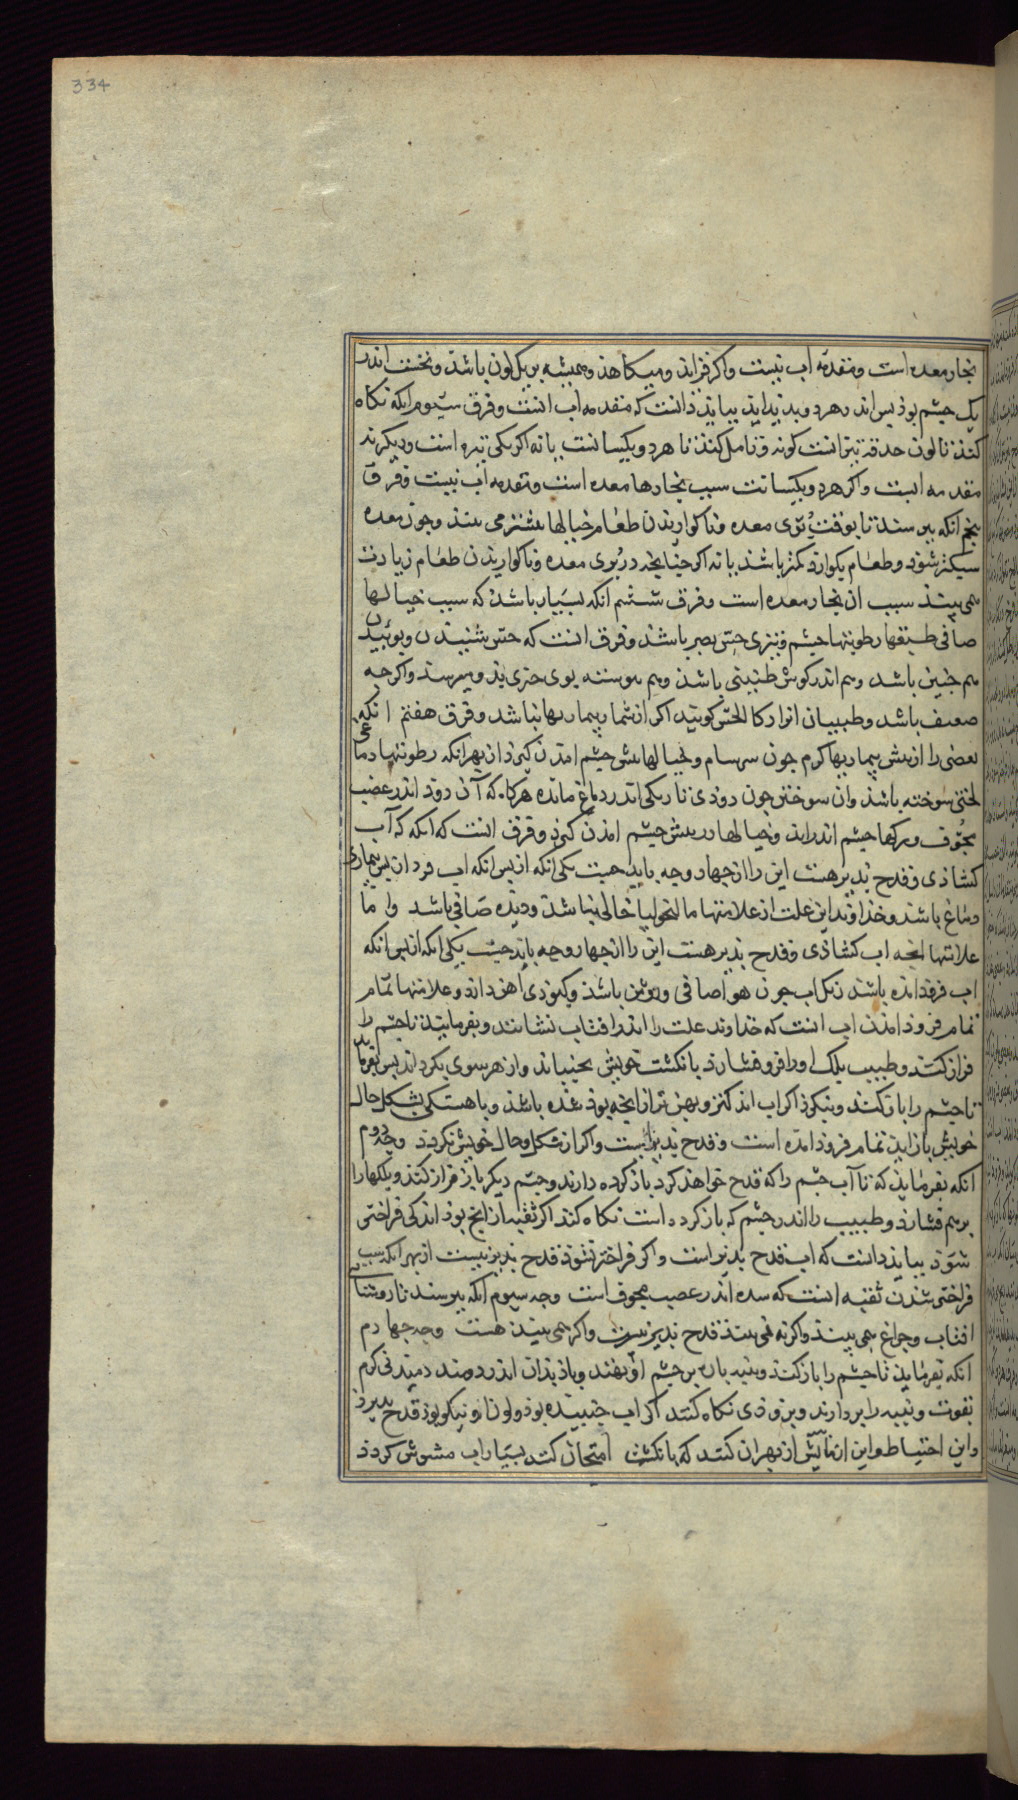 334
بخار معده است و مقدمه آب نیست واکر فزاید و میکاهد و همیشه بر یک لون باشد و نخست اندر
یک چشم بود پس اندر هر دو بدید اید بباید دانست که مقدمه اب است و فرق سیوم انکه نکاه
کنند تا لون حدقه کونه و تامل کنند تا هر دو یکسانست یا نه اکر یکی تیره است و دیکر نه
مقدمه ابست واکر هر دو یکسانست سبب بخارها معده است و مقدمه اب نیست و فرق
پنجم انکه ببرسند تا بوقت بری معده و ناکواریدن طعام خیالها بیشتر می بیند و چون معده
سبکتر شود و طعام بکوارد کمتر باشد یا نه اکر چنانچه در بری معده و ناکواریدن طعام زیادت
می بیند سبب ان بخار معده است و فرق ششم انکه بسیار باشد که سبب خیالها
صافی طبقها و رطوبتها چشم و تیزی حس بصر باشد و فرق انست که حس شنیدن و بوئیدن
هم چنین باشد و هم اندر کوش طنینی باشد و هم پیوسته بوی چیزی و اکرچه
ضعیف باشد و طبیبان انرا ذکا الحس کویند اکر از شمار بیماریها نباشد و فرق هفتم انکه
بعضی را از پس بیماریها کرم چون سرسام و خیالها پیش چشم امدن کیرد از بهر انکه رطوبتها دماغ
لختی سوخته باشد وان سوختن چون دودی تاریک اندر دماغ مانده هر کاه که آن دود اندر عصب
مجوف و رکها چشم اندر اید و خیالها در پیش چشم امدن کیرد و فرق انست که انکه که آب
کشادی و قدح بذیر هست این را از چهار وجه باید جست یکی انکه از پس انکه اب فرو از پس بیماری
دماغ باشد و خداوند این علت از علامتها مالیخولیا خالی نباشد و دیده صافی باشد و اما
علامتها انچه اب کشادی و قدح بذیر هست این را از چهار وجه باید جست یکی انکه از پس انکه
اب فرود امده باشد رنک اب چون هوا صافی و روشن باشد و کبودی اهن دارد و علامتها تمام
تمام فرود امدن اب انست که خداوند علت را اندر افتاب نشانند و بفرمایند تا چشم را
فراز کند و طبیب پلک او را فرو فشارد بانکشت خویش بجنباند و از هر سوی بکرداند پس بفرماید
تا چشم را باز کند و بنکرد اکر اب اندکتر و بهن تر از انچه بود شده باشد و باهستکی بشکل حال
خویش باز اید تمام فرود امده است و قدح بذیر است واکر از شکل و حال خویش نکردد وجه دوم
انکه بفرماید که تا آب چشم را که قدح خواهد کرد باز کرده دارند و چشم دیکر باز فراز کند و پلکها را
بر هم فشارد و طبیب را اندر چشم که باز کرده است نکاه کند اکر ثقبه از انچ بود اندکی فراختر
شود بباید دانست که اب قدح بذیر است واکر فراختر نشود قدح بذیر نیست از بهر انکه سبب
فراختر شدن ثقبه انست که سده اندر عصب مجوف است وجه سیوم انکه ببرسند تا روشنایی
افتاب و چراغ همی بیند واکر نه نمی بیند قدح بذیر نیست واکر همی بیند هست وجه چهارم
انکه بفرماید تا چشم را باز کند و پنبه باره بر چشم او نهند و باد بدان اندر دمند دمیدنی کرم
بقوت و پنبه را بردارند و بزودی نکاه کنند اکر اب جنبیده بود و لون او نیکو بود قدح بذیرد
و این احتیاط و این ازمایش از بهر ان کنند که بانکشت امتحان کنند بسیار اب مشوش کردد